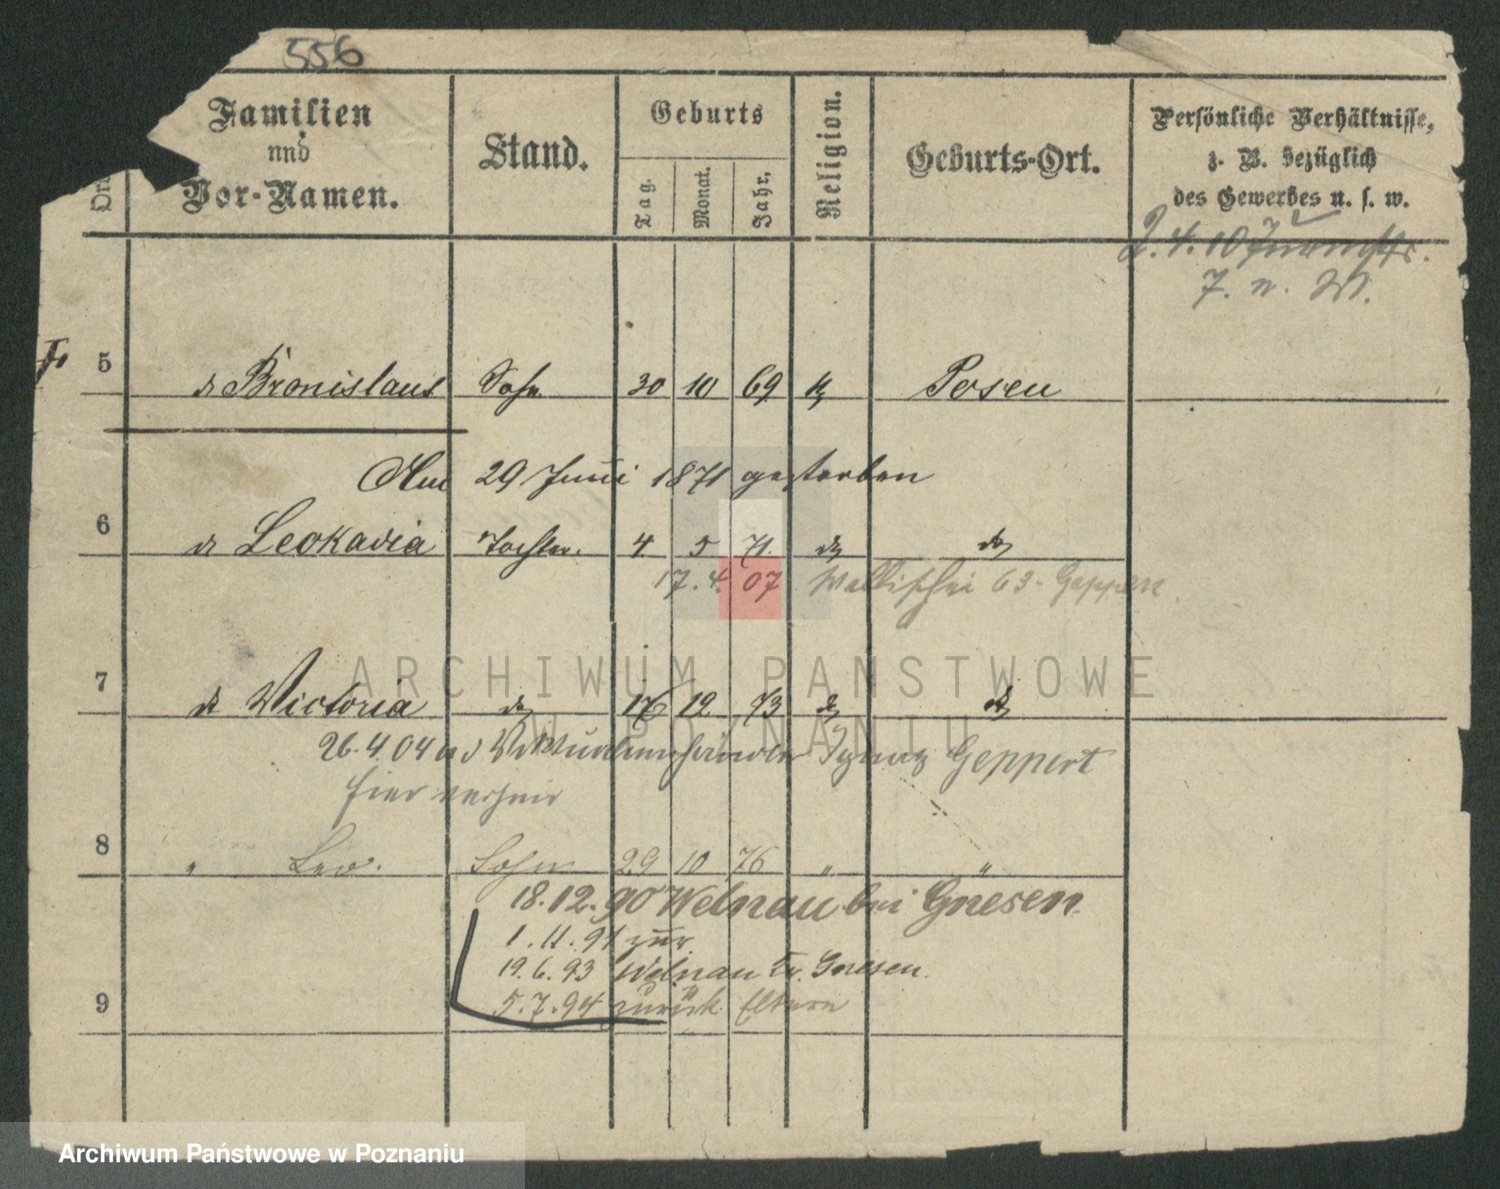 556
Familien
und
Vor-Namen.
Stand.
Geburts
Tag.
Monat.
Jahr.
Religion.
Geburts-Ort.
Persönliche Verhältnisse,
z. B. bezüglich
des Gewerbes u. s. w.
2. 4. 10
7. n. W.
5 Bronislaus Sohn 30 10 69 k Posen
Am 29 Juni 1871 gestorben
6 Leokadia Tochter. 4 5 71. do do
17. 4. 07 Wallischei 63 - Geppert
7 do Victoria do 16 12 73 do do
26. 4. 04 Ignatz Geppert
hier
8 " Leo. Sohn 29 10 76 " "
18. 12. 90 Welnau bei Gnesen
1. 11. 91 zur.
19. 6. 93 Welnau Kr. Gnesen.
9 5. 7. 94 zurück Eltern
ARCHIWUM PAŃSTWOWE
W POZNANIU
Archiwum Państwowe w Poznaniu